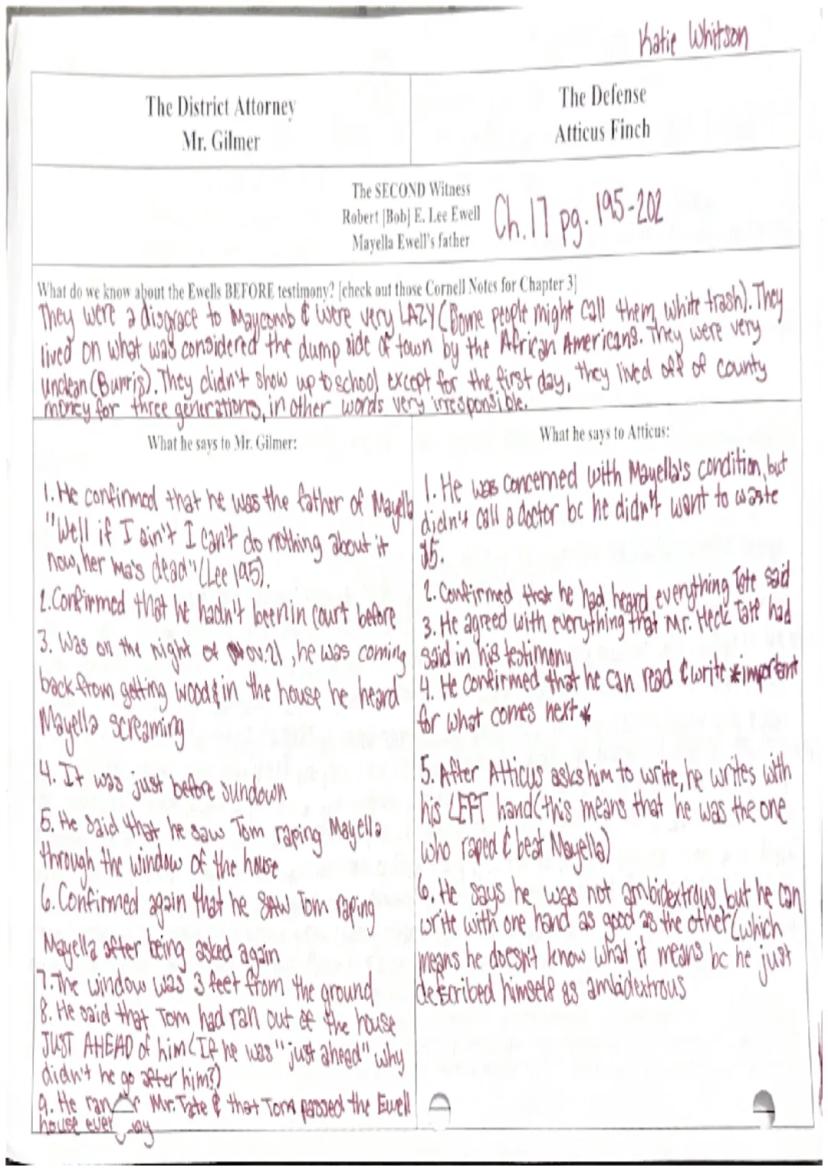 Katie Whitson
The District Attorney
Mr. Gilmer
The Defense
Atticus Finch
The SECOND Witness
Robert [Bob] E. Lee Ewell
Mayella Ewell's father
Ch.17 pg. 195-202
What do we know about the Ewells BEFORE testimony? [check out those Cornell Notes for Chapter 3]
They were a disgrace to Maycomb & were very LAZY (Some people might call them white trash). They
lived on what was considered the dump side of town by the African Americans. They were very
unclean (Burris). They didn't show up to school except for the first day, they lived off of county
money for three generations, in other words very irresponsible.
What he says to Mr. Gilmer:
1. He confirmed that he was the father of Mayella
"Well if I ain't I can't do nothing about it
now, her ma's dead" (Lee 195).
2. Confirmed that he hadn't been in court before
3. Was on the night of Nov. 21, he was coming
back from getting wood & in the house he heard
Mayella screaming
4. It was just before sundown
5. He said that he saw Tom raping Mayella
through the window of the house
6. Confirmed again that he saw Tom raping
Mayella after being asked again
7. The window was 3 feet from the ground
8. He said that Tom had ran out of the house
JUST AHEAD of him (If he was "just ahead" why
didn't he go after him?)
9. He ran Mr. Tate & that Tom passed the Ewell
house
What he says to Atticus:
1. He was concerned with Mayella's condition, but
didn't call a doctor bc he didn't want to waste
$5.
2. Confirmed that he had heard everything Tate said
3. He agreed with everything that Mr. Heck Tate had
said in his testimony
4. He confirmed that he can read & write *important
for what comes next*
5. After Atticus asks him to write, he writes with
his LEFT hand (this means that he was the one
who raped & beat Mayella)
6. He says he was not ambidextrous, but he can
write with one hand as good as the other (which
means he doesn't know what it means bc he just
described himself as ambidextrous